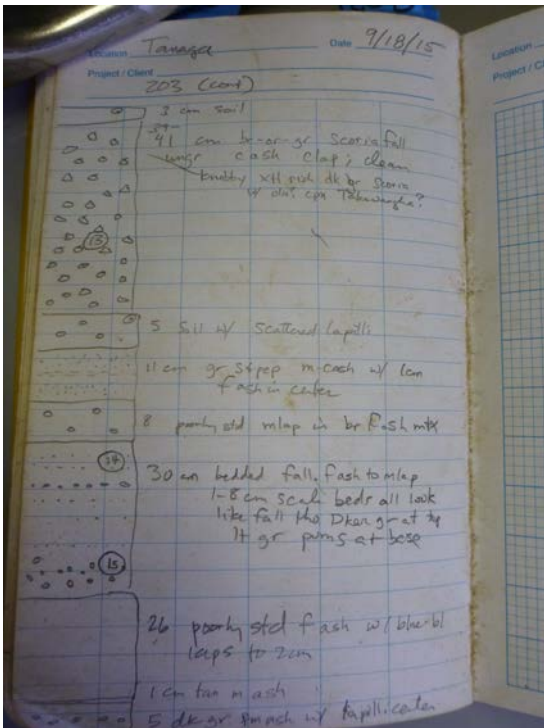 Location Tanaga Date 9/18/15
Project / Client
203 (cont)
3 cm soil
41 cm br-or-gr scoria fall
ungr cash clap; clean
knobby xtl rich dk br scoria
w/ oln? cpx Takawangha?
13
5 soil w/ scattered lapilli
11 cm gr S&pep m-cash w/ 1cm
fash in center
8 poorly std mlap in br fash mtx
14
30 cm bedded fall. fash to mlap
1-8 cm scale beds all look
like fall tho Dker gr at top
lt gr pums at base
15
26 poorly std f ash w/ blk-bl
laps to 2cm
1 cm tan m ash
5 dk gr fmash w/ lapilli center
Location
Project / Client